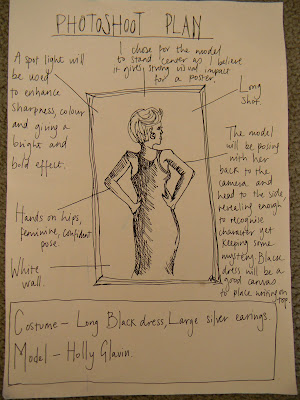 PHOTOSHOOT PLAN
I chose for the model
to stand center as I believe
it gives strong visual impact
for a poster.
A spot light will
be used
to enhance
sharpness, colour
and giving a
bright and
bold effect.
Long
Shot.
The model
will be posing
with her
back to the
camera and
head to the side,
revealing enough
to recognise
character yet
keeping some
mystery. Black
dress will be a
good canvas
to place writing on
top.
Hands on hips,
feminine, confident
pose.
White
wall.
Costume - Long Black dress, Large silver earings.
Model - Holly Glavin.